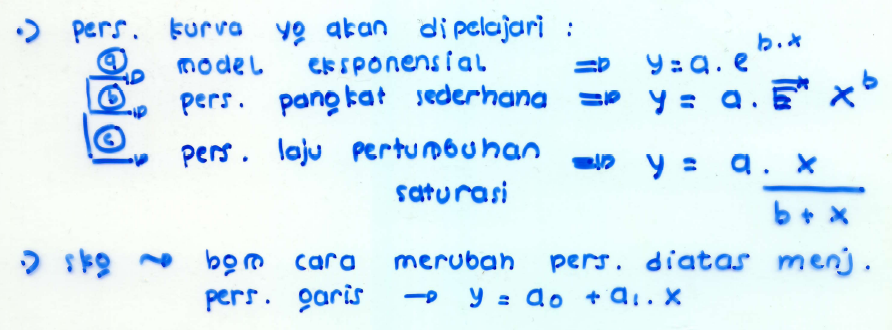 •) pers. kurva yg akan dipelajari :
ⓐ model eksponensial ⇒ y = a. e^b.x
ⓑ pers. pangkat sederhana ⇒ y = a. x^b
ⓒ pers. laju pertumbuhan ⇒ y = a. x / b + x
saturasi
•) skg ~> bgm cara merubah pers. diatas menj.
pers. garis → y = a₀ + a₁. x